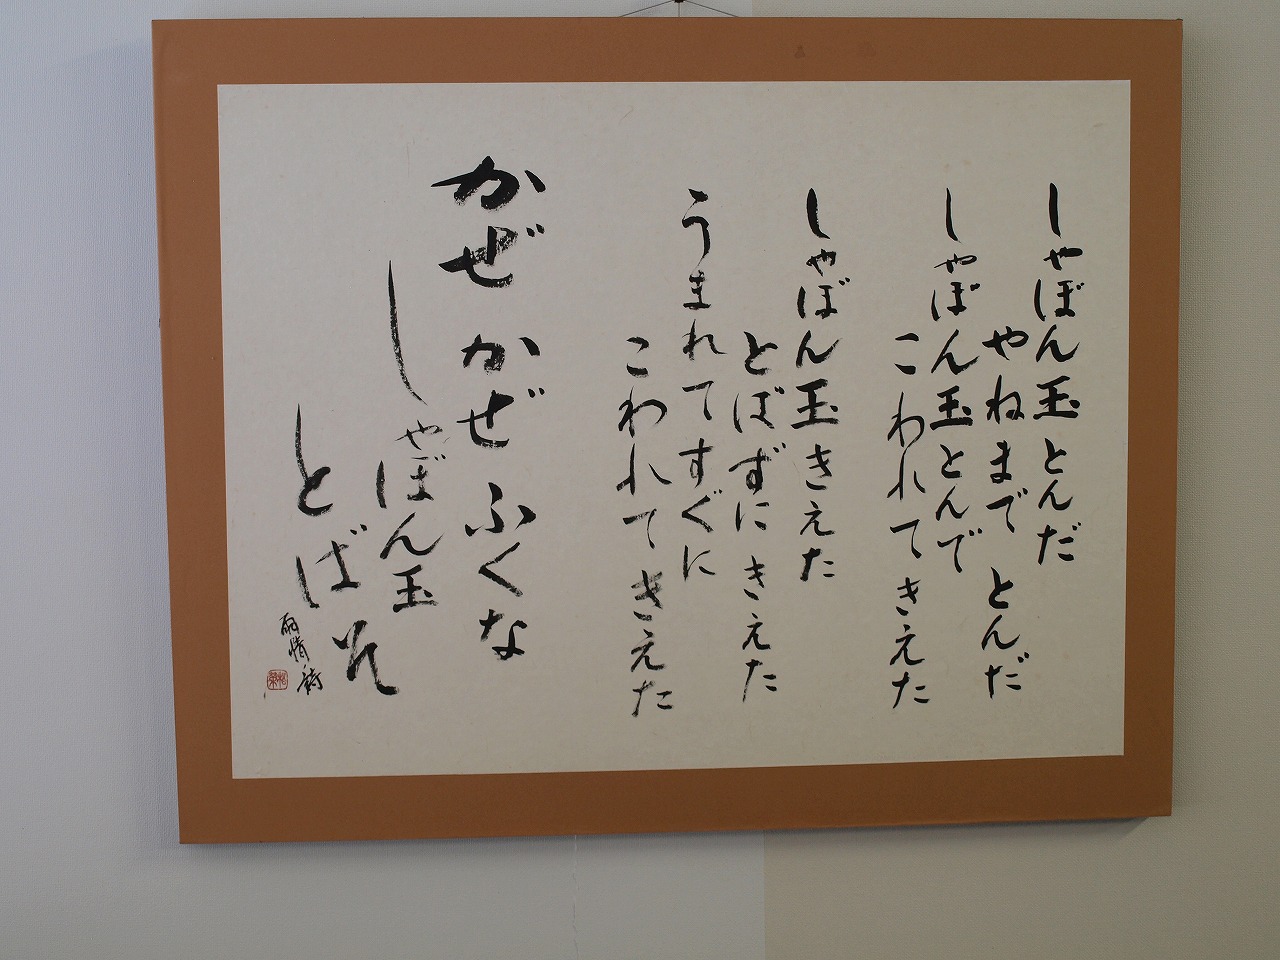 しゃぼん玉とんだ
やねまでとんだ
しゃぼん玉とんで
こわれてきえた
しゃぼん玉きえた
とばずにきえた
うまれてすぐに
こわれてきえた
かぜかぜふくな
しゃぼん玉
とばそ
雨情 詩